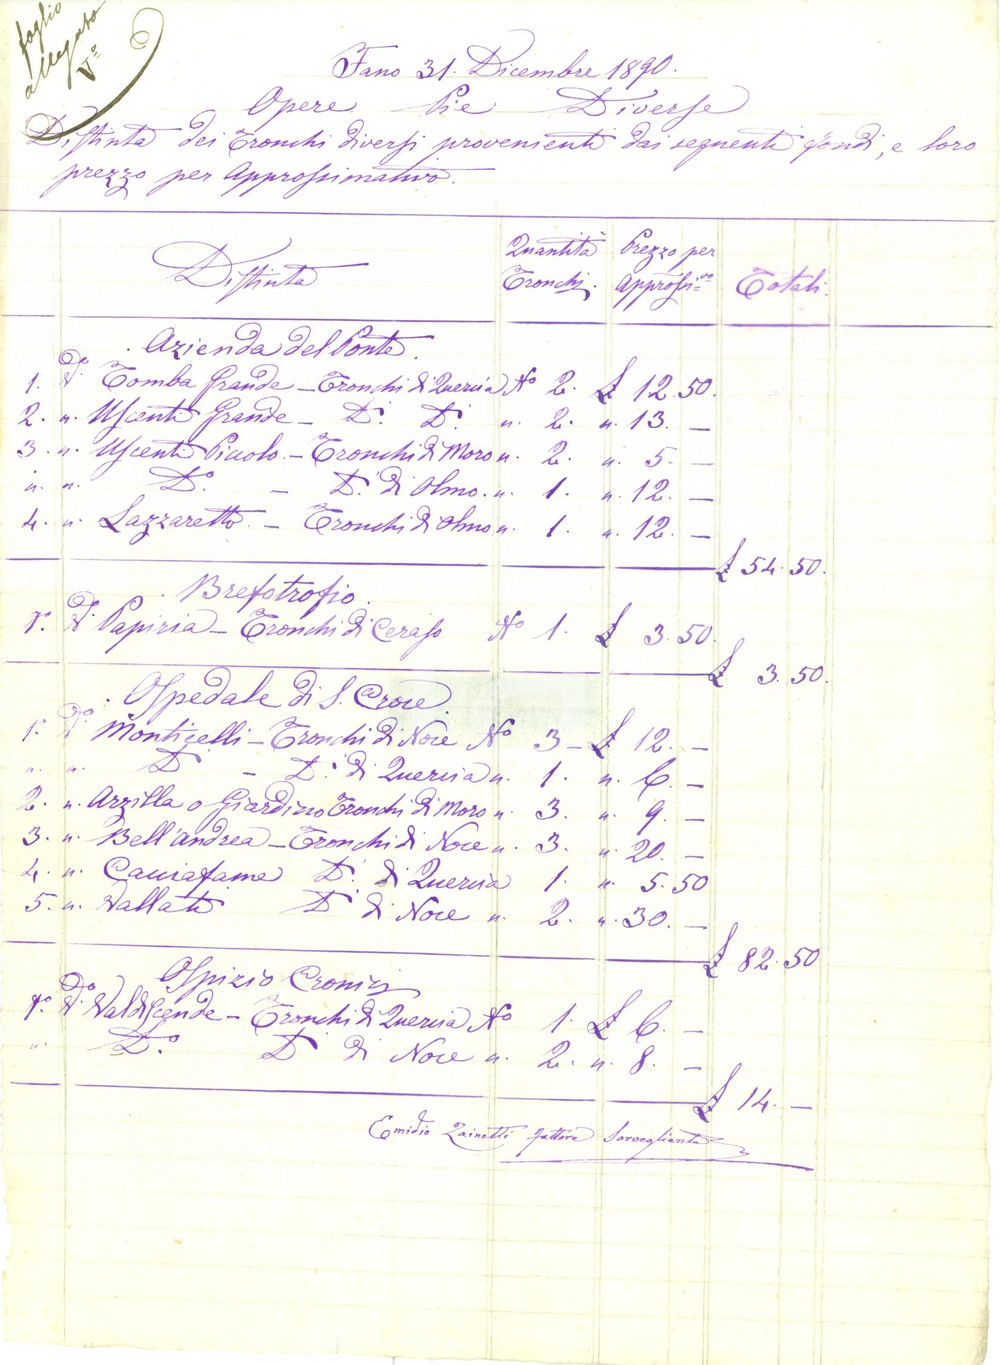 foglio
allegato
V°
Fano 31. Dicembre 1890.
Opere Pie Diverse
Distinta dei Tronchi diversi provenienti dai seguenti fondi, e loro
prezzo per Approssimativo.
Distinta
Quantità Tronchi.
Prezzo per Approssi.vo
Totali.
Azienda del Ponte.
1. Tomba Grande – Tronchi di Quercia N° 2. £ 12.50.
2. „ Uscenti Grande – D°. D°. „ 2. „ 13. –
3. „ Uscenti Piccolo. – Tronchi di Moro „ 2. „ 5. –
„ „ D°. – D°. di Olmo. „ 1. „ 12. –
4. „ Lazzaretto. – Tronchi di Olmo „ 1. „ 12. –
£ 54.50.
Brefotrofio.
1°. Papiria – Tronchi di Ceraso N° 1. £ 3.50.
£ 3.50.
Ospedale di S. Croce.
1°. Monticelli – Tronchi di Noce N° 3 – £ 12. –
„ „ D° – D°. di Quercia „ 1. „ 6. –
2. „ Arzilla o Giardino Tronchi di Moro „ 3. „ 9. –
3. „ Bell'andrea – Tronchi di Noce „ 3. „ 20. –
4. „ Cacciafame D°. di Quercia 1. „ 5.50
5. „ Vallati D° di Noce „ 2. „ 30. –
£ 82.50
Ospizio Cronici
1°. – Tronchi di Quercia N° 1. £ 6. –
„ D°. D° di Noce „ 2. „ 8. –
£ 14. –
Emidio Zainetti Fattore Sorvegliante